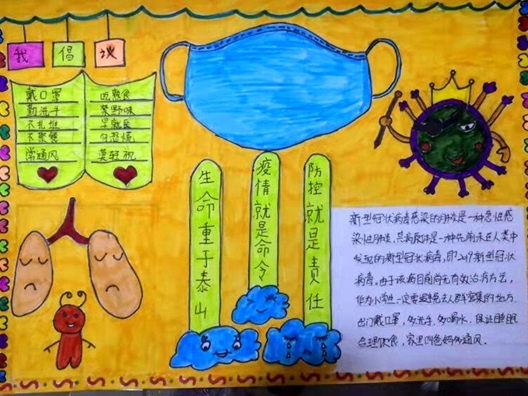 我倡议
戴口罩
勤洗手
不扎堆
不聚餐
常通风
吃熟食
禁野味
早就医
勿恐慌
莫轻视
生命重于泰山
疫情就是命令
防控就是责任
新型冠状病毒感染的肺炎是一种急性感
染性肺炎,其病原体是一种先前未在人类中
发现的新型冠状病毒,即2019新型冠状
病毒,由于该病目前尚无有效治疗方法,
作为小学生一定要避免去人群密集的地方
出门戴口罩,多洗手,多喝水,保证睡眠
合理饮食,家里四色妈勿通风。